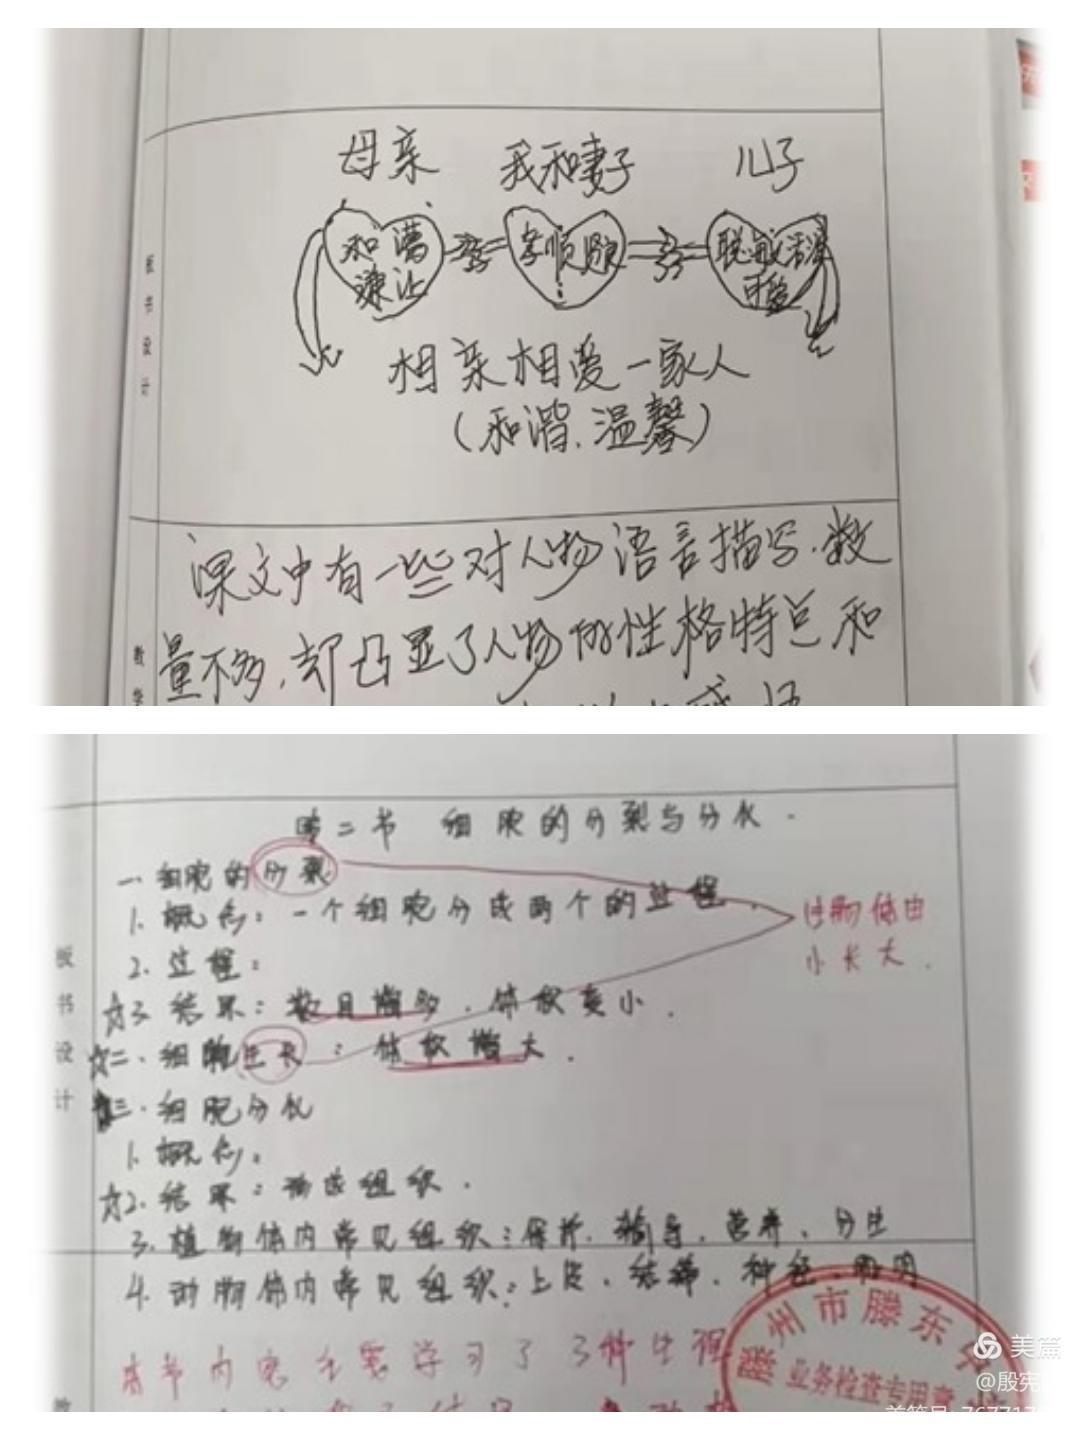 母亲 我和妻子 儿子
和蔼 孝顺 聪敏活泼
谦让 可爱
相亲相爱一家人
(和谐.温馨)
板书设计
课文中有一些对人物语言描写.数
量不多,却凸显了人物的性格特点和
教学
第二节 细胞的分裂与分化.
一.细胞的分裂
1.概念:一个细胞分成两个的过程.
生物体由
小长大.
2.过程:
☆3.结果:数目增多.体积变小.
☆二、细胞生长:体积增大.
板书设计
☆三.细胞分化
1.概念:
☆2.结果:形成组织.
3.植物体内常见组织:保护.输导.营养、分生
4.动物体内常见组织:上皮、结缔.神经.肌肉
本节内容主要学习了3种生理
教
州市滕东中
业务检查专用章
美篇
@殷宪